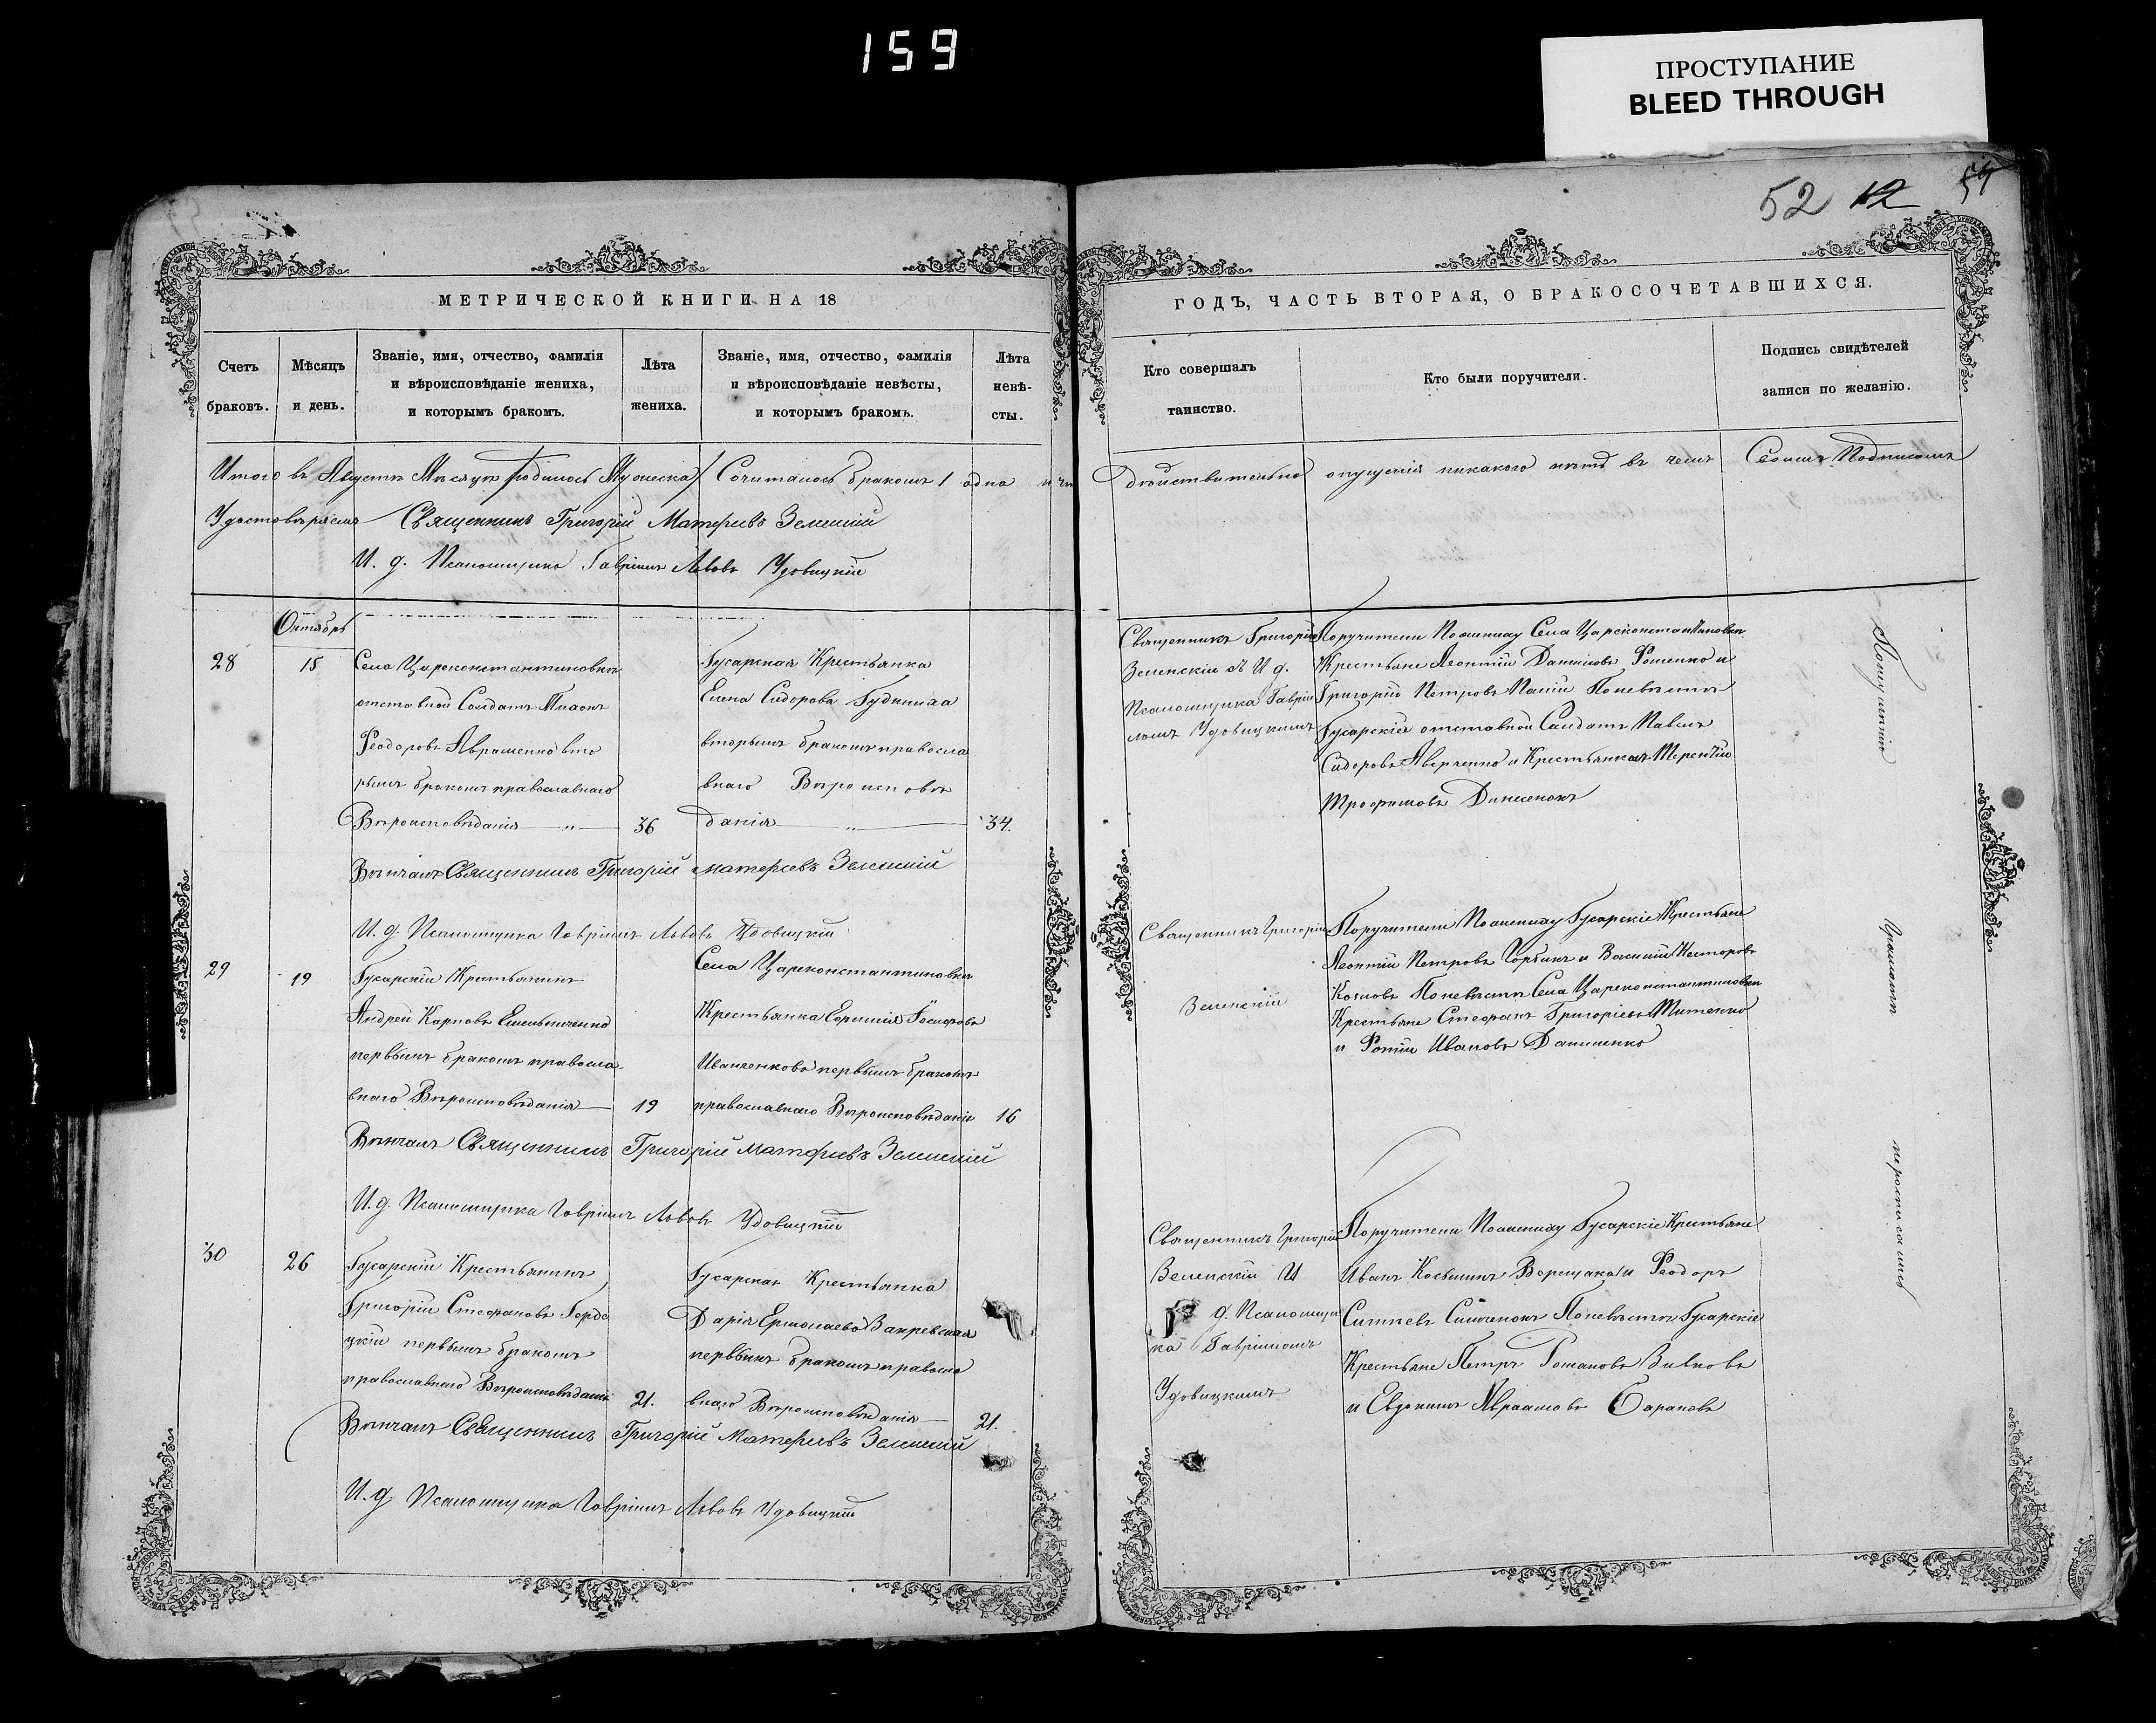 159
ПРОСТУПАНИЕ
BLEED THROUGH
52 12
МЕТРИЧЕСКОЙ КНИГИ НА 18
Счетъ браковъ.
Мѣсяцъ и день.
Званіе, имя, отчество, фамилія
и вѣроисповѣданіе жениха,
и которымъ бракомъ.
Лѣта
жениха.
Званіе, имя, отчество, фамилія
и вѣроисповѣданіе невѣсты,
и которымъ бракомъ.
Лѣта
невѣ-
сты.
Итого въ Августѣ Мѣсяцѣ Сочиталось бракомъ 1 одна
Удостовѣряемъ Священникъ Григорій Матѳеевъ Зеленскій
И. д. Псаломщика Гавріилъ Львовъ Удовицкій
Октябрь
28
15
Села Цареконстантиновки
отставной Солдатъ
Феодоровъ Авраменко вто
рымъ бракомъ православнаго
Вѣроисповѣданія
36
Гусарская Крестьянка
Елена Сидорова
вторымъ бракомъ правосла
внаго Вѣроисповѣ
данія
34.
Вѣнчалъ Священникъ Григорій Матѳеевъ Зеленскій
И. д. Псаломщика Гавріилъ Львовъ Удовицкій
29
19
Гусарскій Крестьянинъ
Андрей Карповъ Емельяненко
первымъ бракомъ правосла
внаго Вѣроисповѣданія
19
Села Цареконстантиновки
Крестьянка
Иванченкова первымъ бракомъ
православнаго Вѣроисповѣданія
16
Вѣнчалъ Священникъ Григорій Матѳеевъ Зеленскій
И. д. Псаломщика Гавріилъ Львовъ Удовицкій
30
26
Гусарскій Крестьянинъ
Григорій Стефановъ
цкій первымъ бракомъ
православнаго Вѣроисповѣданія
21.
Гусарская Крестьянка
Дарія Ермолаева Закревская
первымъ бракомъ правосла
внаго Вѣроисповѣданія
21.
Вѣнчалъ Священникъ Григорій Матѳеевъ Зеленскій
И. д. Псаломщика Гавріилъ Львовъ Удовицкій
ГОДЪ, ЧАСТЬ ВТОРАЯ, О БРАКОСОЧЕТАВШИХСЯ.
Кто совершалъ
таинство.
Кто были поручители.
Подпись свидѣтелей
записи по желанію.
дѣйствительно опущенія никакого нѣтъ въ чемъ Своимъ Подписомъ
Священникъ Григорій
Зеленскій съ И. д.
Псаломщика Гаврі
ломъ Удовицкимъ
Поручители По жениху Села Цареконстантиновки
Крестьяне Леонтій Даниловъ Фоменко и
Григорій Петровъ По невѣстѣ
Гусарскіе отставной Солдатъ Павелъ
Сидоровъ Аверченко и Крестьянинъ Терентій
Трофимовъ
Священникъ Григорій
Зеленскій
Поручители По жениху Гусарскіе Крестьяне
Леонтій Петровъ Горбикъ и Василій Несторовъ
Козловъ По невѣстѣ Села Цареконстантиновки
Крестьяне Стефанъ Григорьевъ Титенко
и Фотій Ивановъ Даниленко
Священникъ Григорій
Зеленскій И
д. Псаломщи
ка Гавріиломъ
Удовицкимъ
Поручители По жениху Гусарскіе Крестьяне
Иванъ Косьминъ Верещака и Феодоръ
По невѣстѣ Гусарскіе
Крестьяне Петръ Романовъ
и Евдокимъ Авраамовъ Барановъ